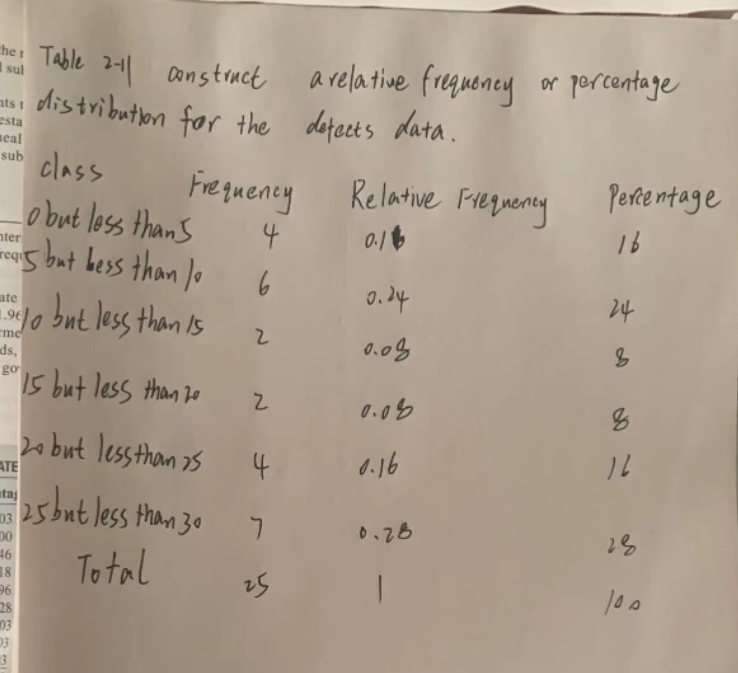 Table 2-11 construct a relative frequency or percentage
distribution for the defects data.
class Frequency Relative Frequency Percentage
0 but less than 5 4 0.16 16
5 but less than 10 6 0.24 24
10 but less than 15 2 0.08 8
15 but less than 20 2 0.08 8
20 but less than 25 4 0.16 16
25 but less than 30 7 0.28 28
Total 25 1 100